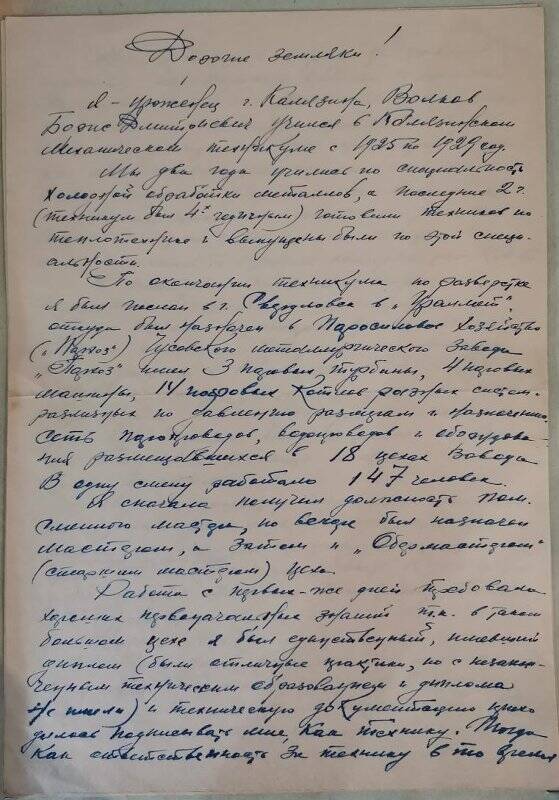 Дорогие земляки!
Я - уроженец г. Калязина, Волков
Борис Дмитриевич учился в Калязинском
Механическом техникуме с 1925 по 1929 год.
Мы два года учились по специальность
Холодной обработки металлов, а последние 2 г.
(техникум был 4х годичным) готовили техников по
теплотехнике и выпущены были по этой специ-
альности.
По окончании техникума по разверстке
я был послан в г. Свердловск в "Уралмет"
откуда был назначен в Паросиловое Хозяйство
("Пархоз") Чусовского металлургического Завода
"Пархоз" имел 3 паровых турбины, 4 паровых
машины, 14 паровых котлов разных систем.
различных по давлению размерам и
паропроводов, водопроводов и оборудова-
ния размещавшихся в 18 цехах Завода
В одну смену работало 147 человек.
Я сначала получил должность пом.
Сменного мастера, но вскоре был назначен
мастером, а Затем и "Обермастером"
(старшим мастером) цеха.
Работа с первых-же дней требовала
хороших первоначальных знаний т.к. в таком
большом цехе я был единственный, имевший
диплом (были отличные практики, но с незакон-
ченным техническим образованием и диплома
не имели) и техническую документацию прихо-
дилось подписывать мне, как технику. Тогда
как ответственность За технику в то время